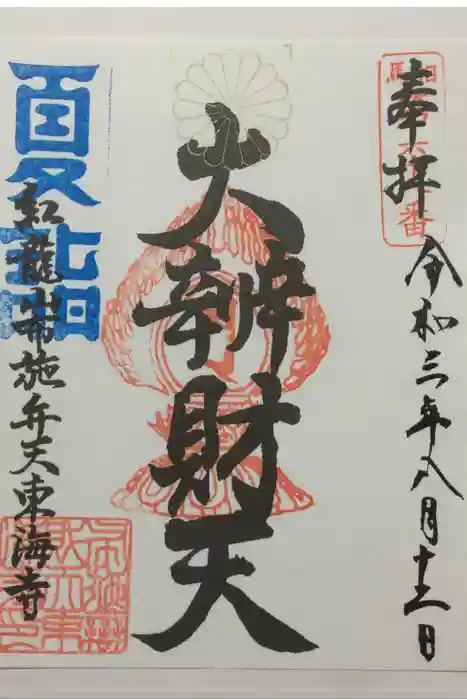 奉拝
令和三年八月十三日
大辨財天
夏詣
紅龍山布施弁天東海寺